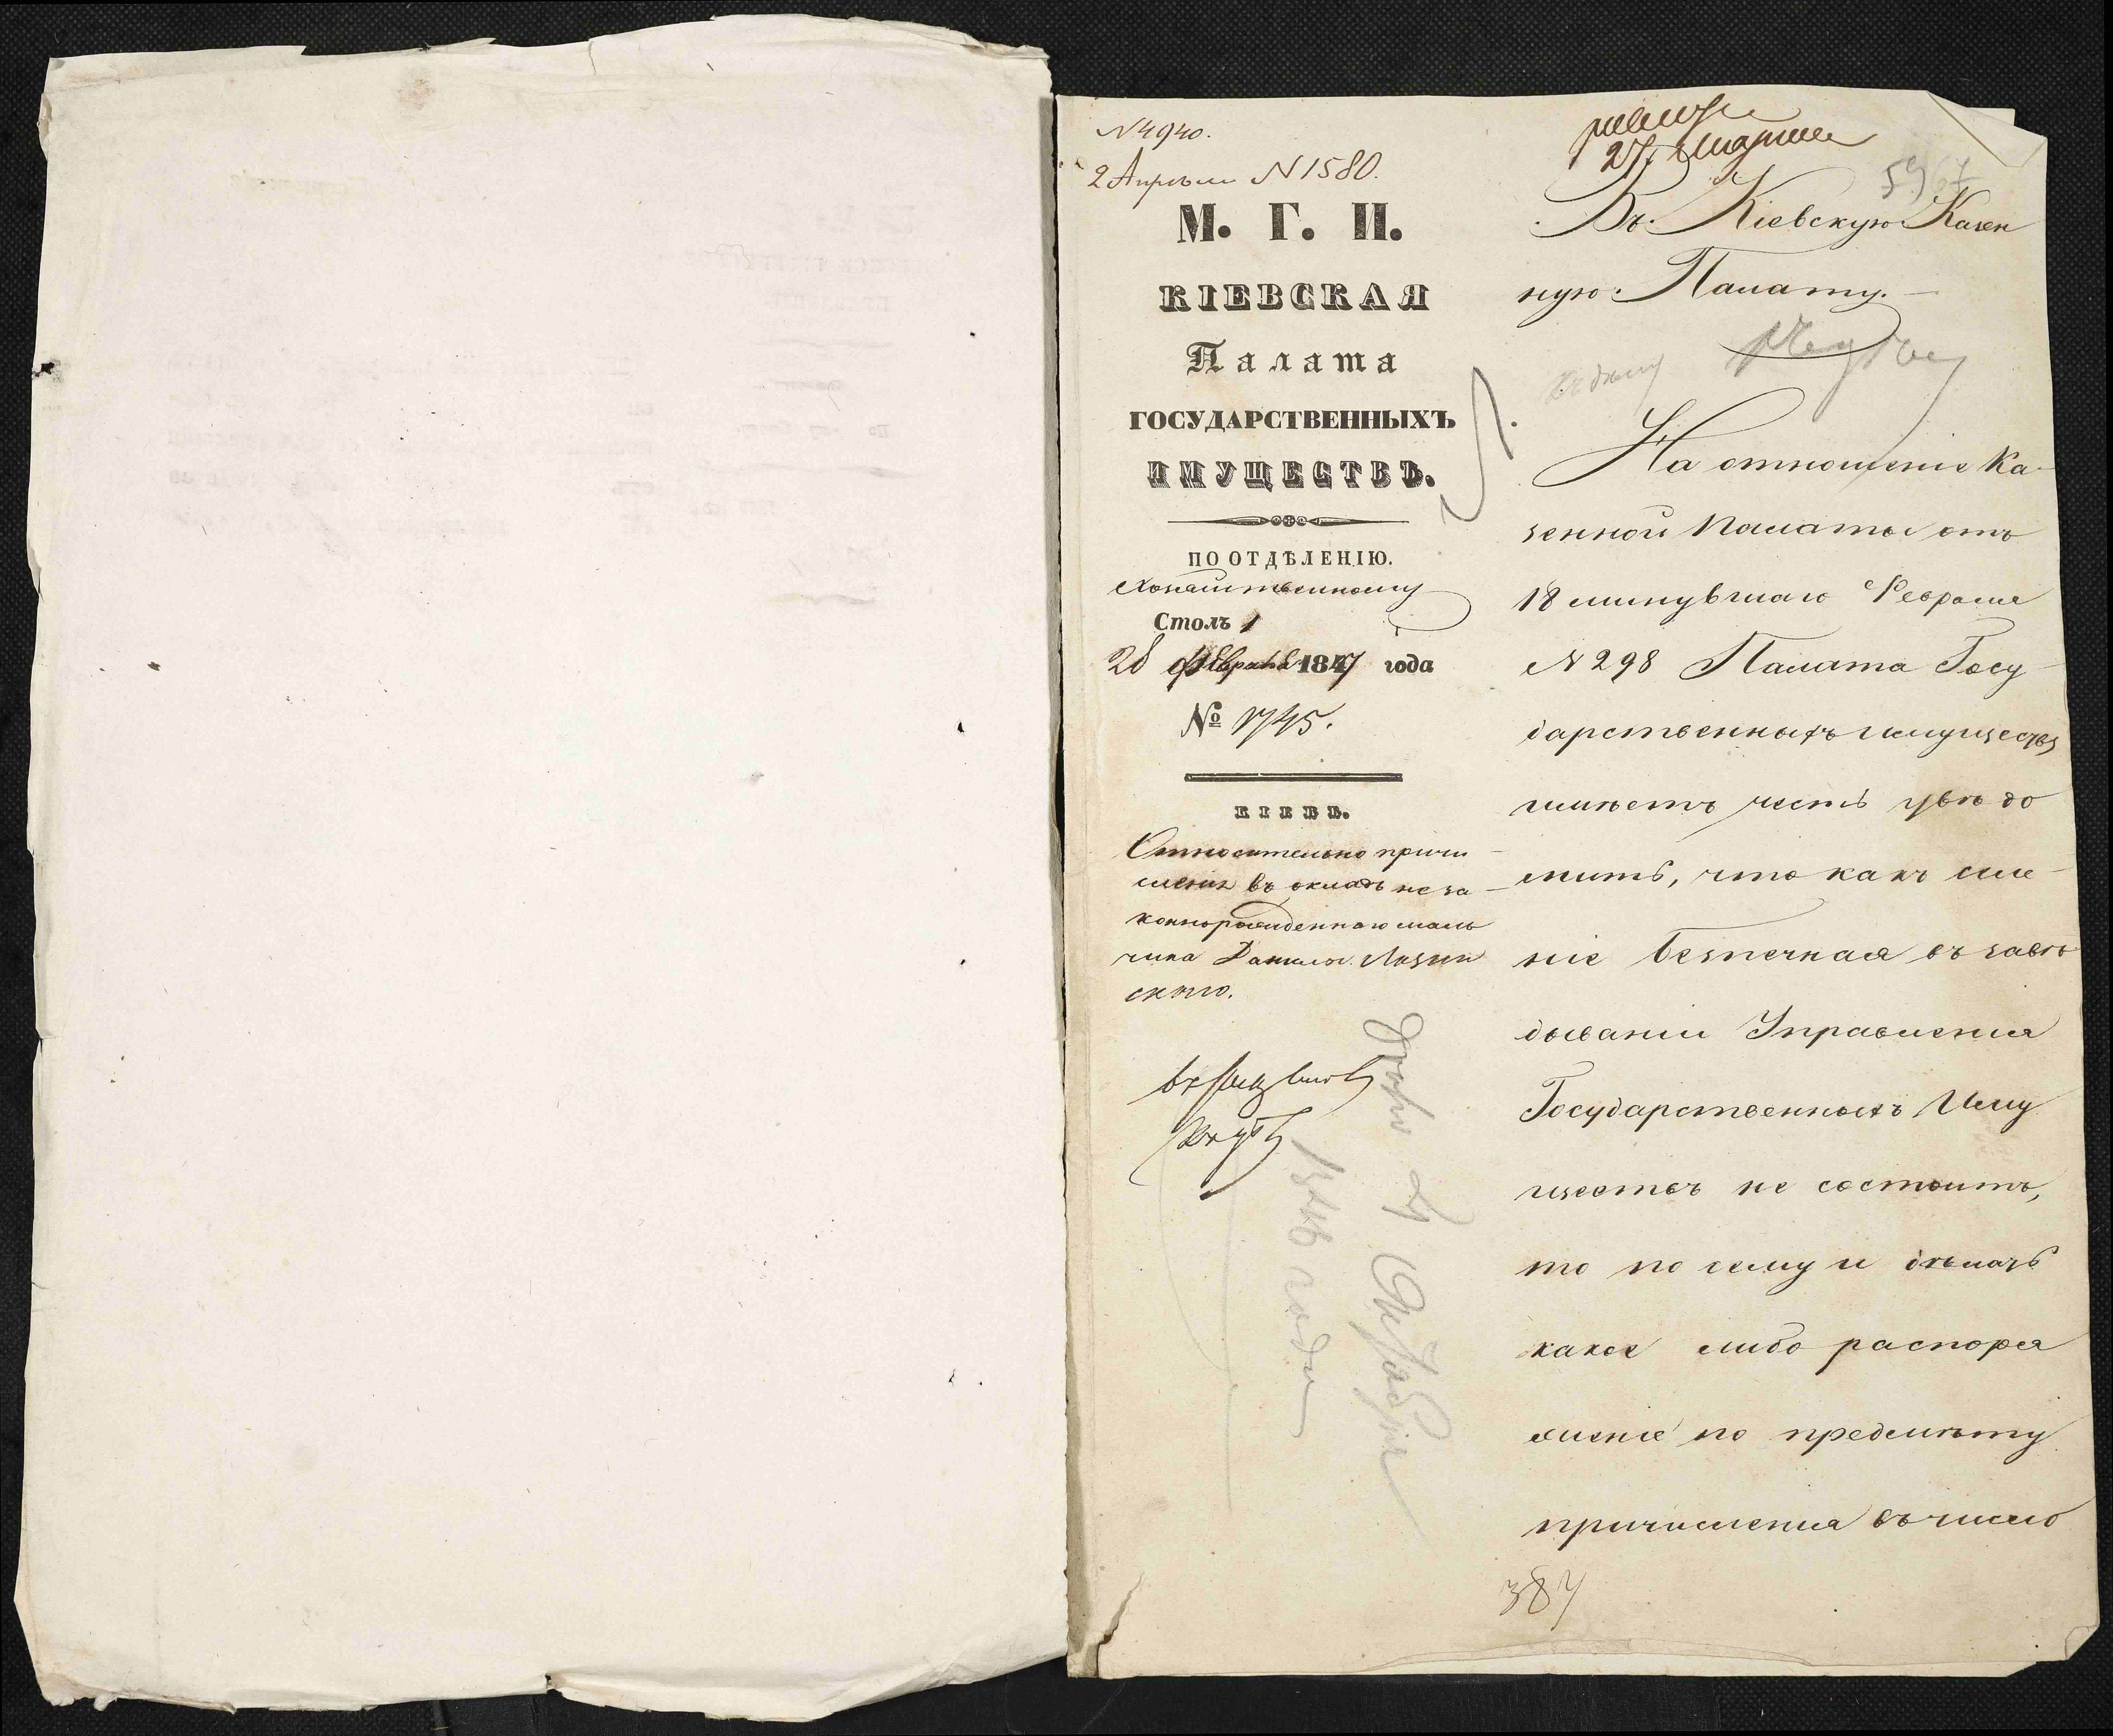 N 4940.
2 Апрѣля N 1580.
М. Г. И.
КІЕВСКАЯ
Палата
ГОСУДАРСТВЕННЫХЪ
ИМУЩЕСТВЪ.
ПО ОТДѢЛЕНІЮ.
Хозяйственному
Столъ 1
28 февраля 1847 года
№ 1745.
КІЕВЪ.
Относительно причи
сленія въ окладъ неза-
коннорожденнаго маль
чика Данила
скаго.
27 марта
59
Въ Кіевскую Казен
ную Палату.
На отношеніе Ка-
зенной Палаты отъ
18 минувшаго Февраля
N 298 Палата Госу
дарственныхъ имуществъ
имѣетъ честь увѣдо
мить, что какъ имѣ
ніе Безпечная въ завѣ
дываніи Управленія
Государственныхъ Иму
ществъ не состоитъ,
то по сему и дѣлать
какое либо распоря
женіе по предмѣту
причисленія въ число
384